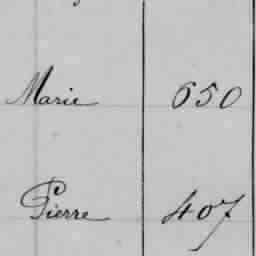 Marie 650
Pierre 407